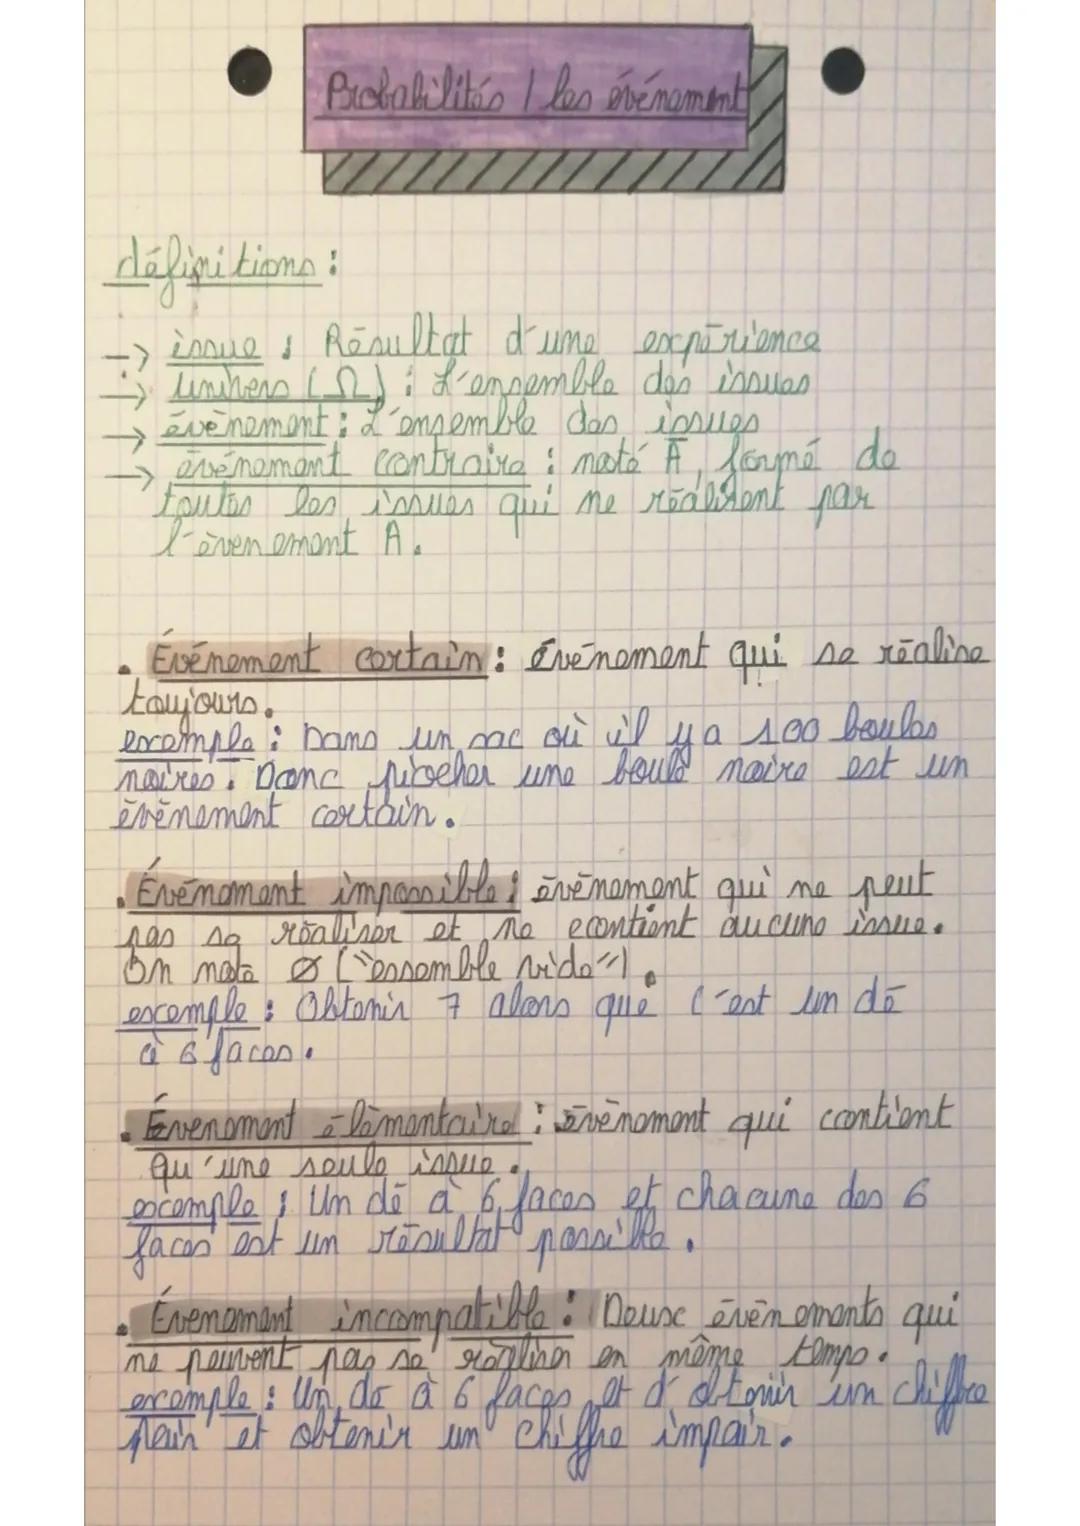 Probabilités / les événement
définitions :
→ issue : Résultat d'une expérience
→ Univers (Ω) : L'ensemble des issues
→ évènement : L'ensemble des issues
→ événement contraire : noté Ā, formé de
toutes les issues qui ne réalisent par
l'évenement A.
• Événement certain : événement qui se réalise
toujours.
exemple : Dans un sac où il y a 100 boules
noires. Donc piocher une boule noire est un
évènement certain.
• Événement impossible : événement qui ne peut
pas se réaliser et ne contient aucune issue.
On note Ø ("ensemble vide").
exemple : Obtenir 7 alors que c'est un dé
à 6 faces.
• Évenement élémentaire : évènement qui contient
qu'une seule issue.
exemple : Un dé à 6 faces et chacune des 6
faces est un résultat possible.
• Évenement incompatible : Deux événements qui
ne peuvent pas se réaliser en même temps.
exemple : Un dé à 6 faces et d'obtenir un chiffre
pair et obtenir un chiffre impair.